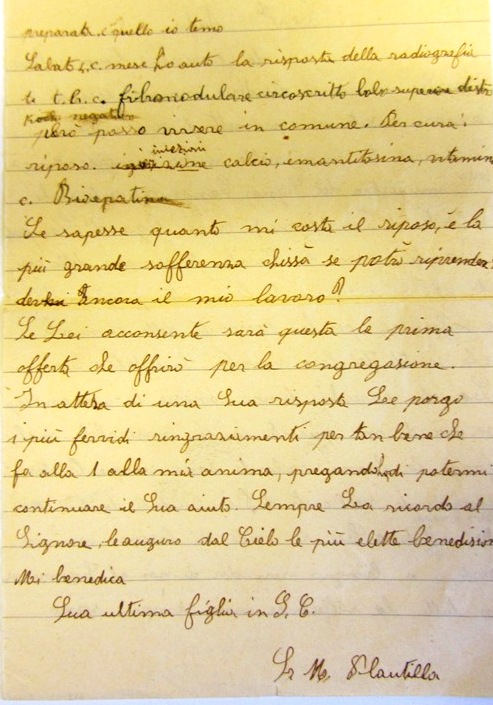 preparata. é quello io temo
Sabato, c. mese ho auto la risposta della radiografia
è t.b.c. fibronodulare circoscritto lobo superiore distro
Koch. negativo
però posso vivere in comune. Per cura:
iniezioni
riposo. calcio, emantitosina, vitamin
c. Bioepatina
Se sapesse quanto mi costa il riposo, é la
più grande sofferenza chissà se potrò riprender
ancora il mio lavoro?
Se Lei acconsente sarà questa la prima
offerta che offrirò per la congregasione.
In attesa di una Sua risposta Le porgo
i più fervidi ringraziamenti per tan bene che
fa alla 1 alla mia anima, pregandoLa di potermi
continuare il Suo aiuto. Sempre La ricordo al
Signore, le auguro dal Cielo le più elette benedision
Mi benedica
Sua ultima figlia in G. C.
Sr M. Plautilla